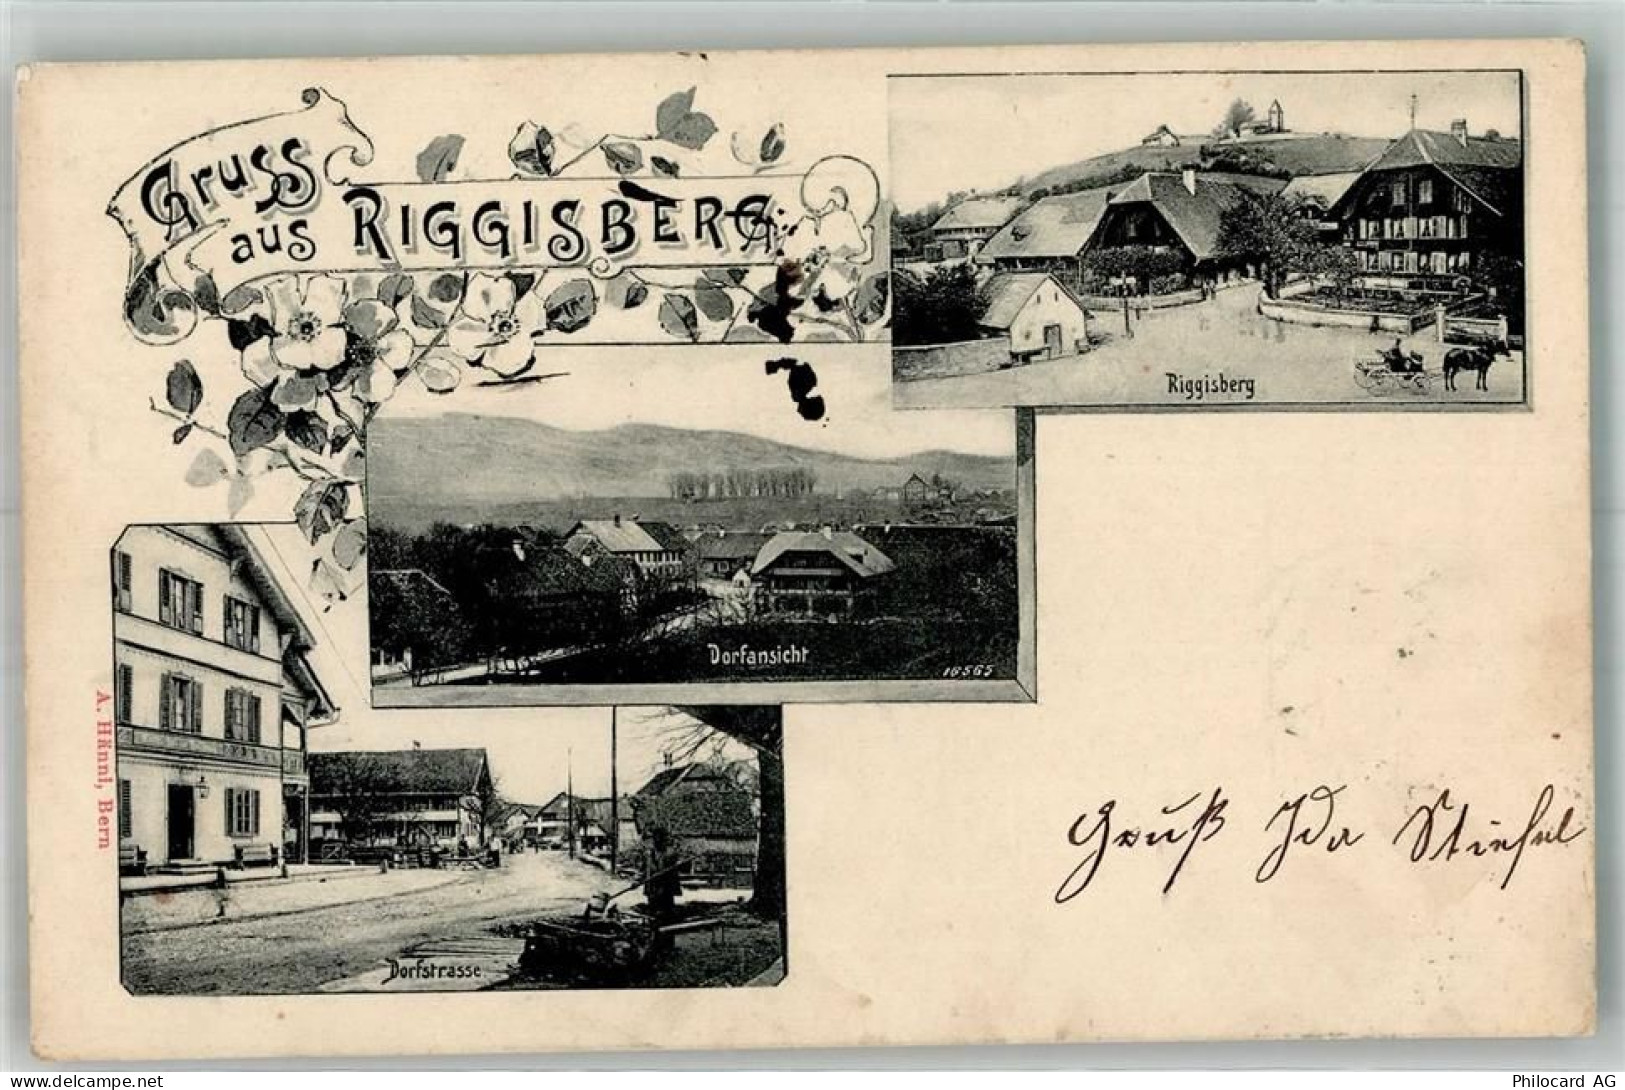 Gruss
aus RIGGISBERG
Riggisberg
Dorfansicht
16565
Dorfstrasse
A. Hänni, Bern
Gruß Ida Stiefel
delcampe.net
Philocard AG